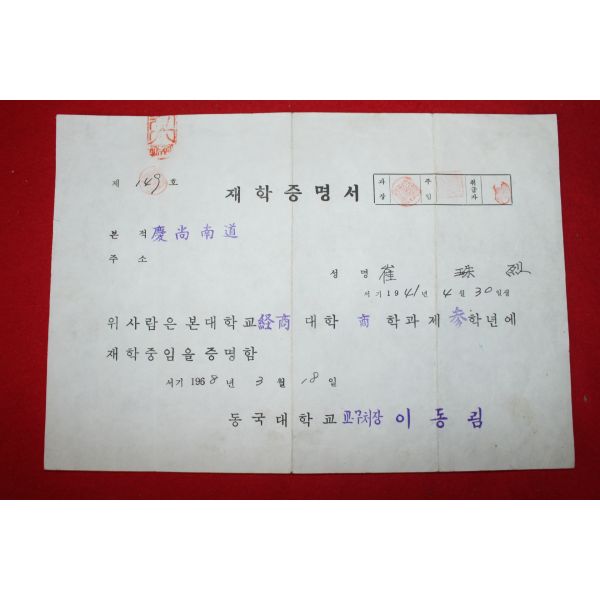 제 149 호
재학증명서
과장 주임 취급자
본적 慶尙南道
주소
성명 崔 珠 烈
서기 1941년 4월 30일생
위 사람은 본 대학교 経商 대학 商 학과 제 参 학년에
재학중임을 증명함
서기 1968년 3월 18일
동국대학교 교무처장 이동림